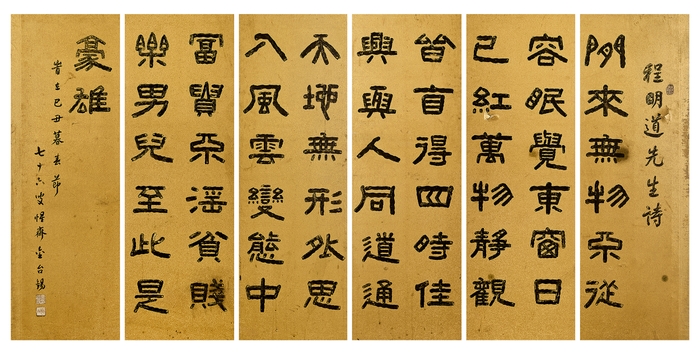 程明道先生詩
閒來無物不從
容眠覺東窗日
已紅萬物靜觀
皆自得四時佳
興與人同道通
天地無形外思
入風雲變態中
富貴不淫貧賤
樂男兒至此是
豪雄
旹在己丑暮春節
七十六叟惺齊金台錫